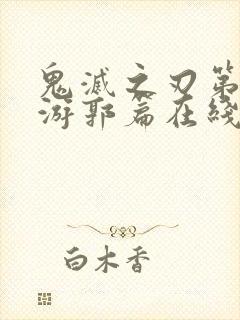 鬼滅之刃第
游郭篇在綫
白木香